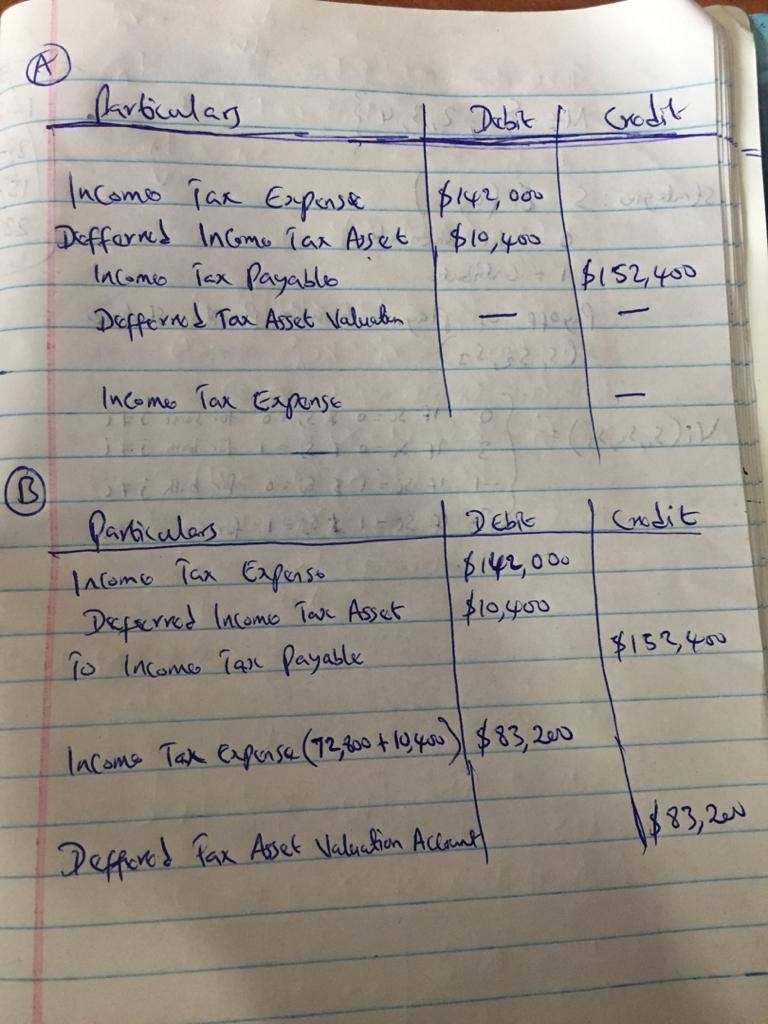 A
Particulars Debit Credit
Income Tax Expense $142,000
Defferred Income Tax Asset $10,400
Income Tax Payable $152,400
Defferred Tax Asset Valuation — —
Income Tax Expense —
B
Particulars Debit Credit
Income Tax Expense $142,000
Defferred Income Tax Asset $10,400
To Income Tax Payable $152,400
Income Tax Expense (72,800 + 10,400) $83,200
Deffered Tax Asset Valuation Account $83,200